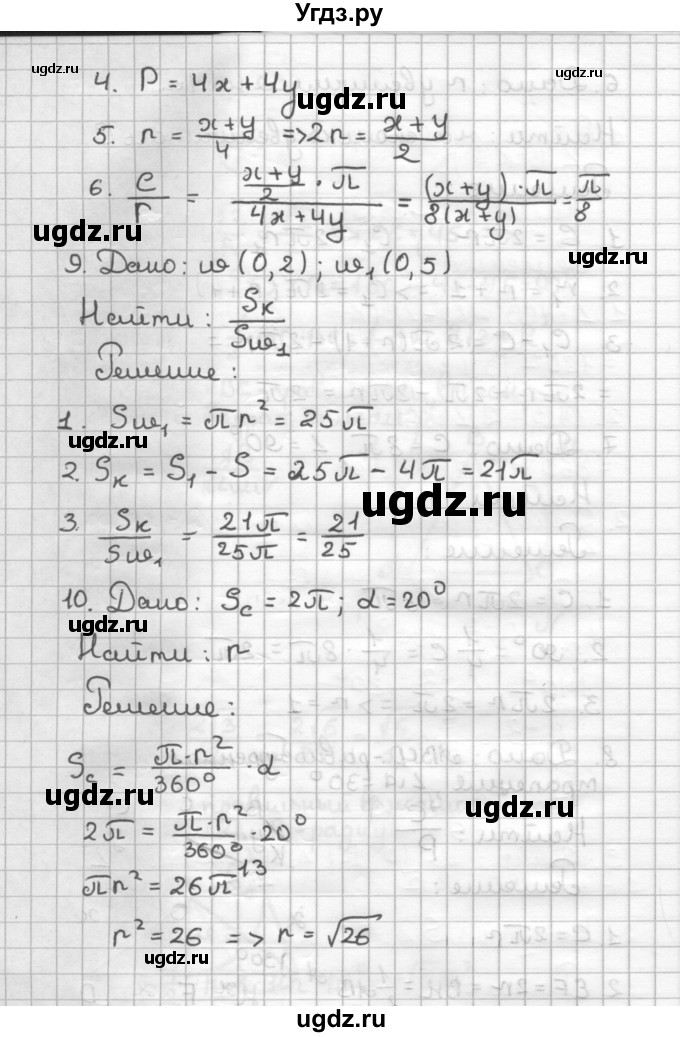 Угдз.ру
ugdz.ru ugdz.ru
4. P = 4x + 4y
ugdz.ru
5. r = (x+y)/4 => 2r = (x+y)/2
6. C/P = ((x+y)/2 · π)/(4x+4y) = ((x+y)·π)/(8(x+y)) = π/8
ugdz.ru ugdz.ru
9. Дано: ω(0,2); ω₁(0,5)
Найти: Sк/Sω₁
ugdz.ru
Решение:
1. Sω₁ = πr² = 25π
ugdz.ru
2. Sк = S₁ - S = 25π - 4π = 21π
ugdz.ru
3. Sк/Sω₁ = 21π/25π = 21/25
10. Дано: Sc = 2π; α = 20⁰
ugdz.ru
Найти: r
Решение:
Sc = (π·r²)/360⁰ · α
ugdz.ru ugdz.ru
2π = (π·r²)/360⁰ · 20⁰
13
πr² = 26π
r² = 26 => r = √26
ugdz.ru
ugdz.ru